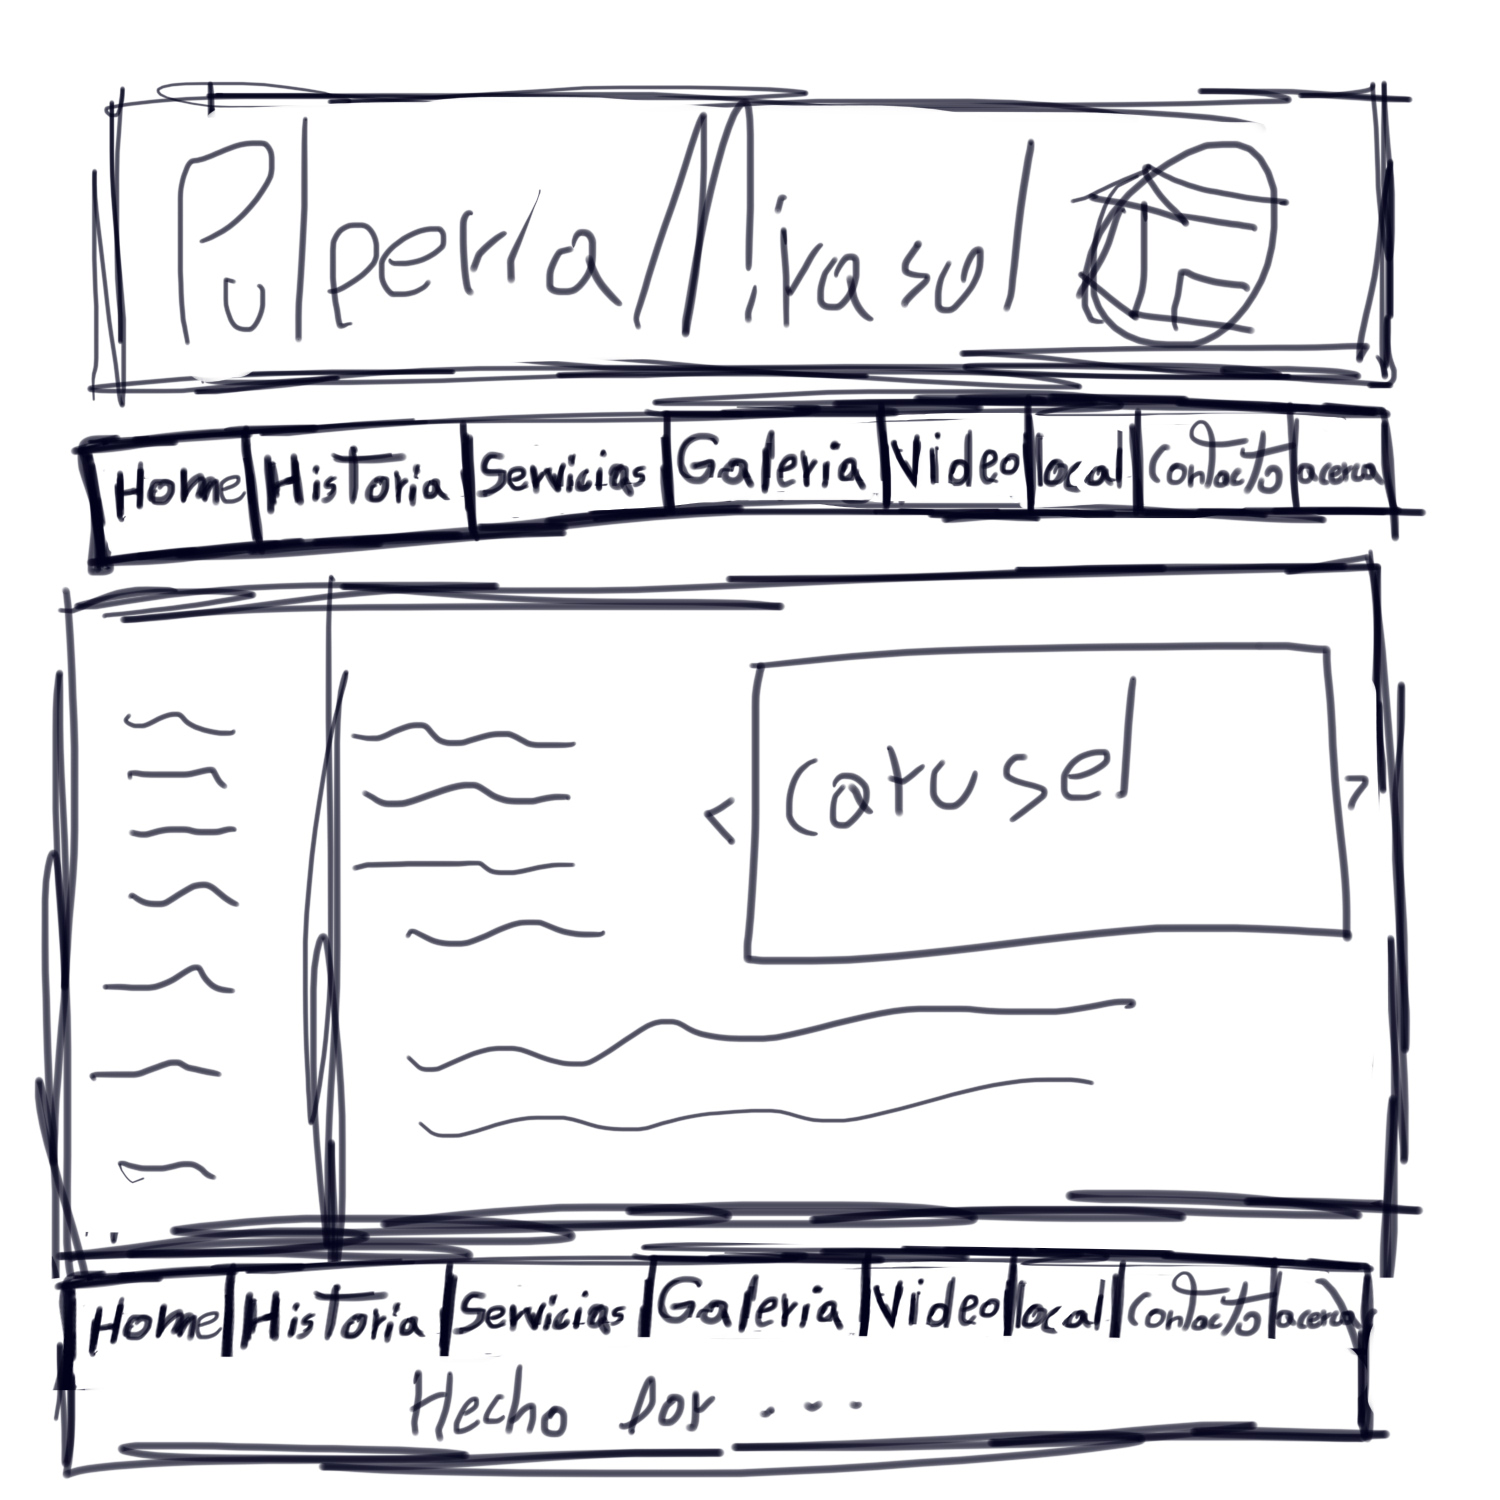 Pulpería Mirasol
Home Historia Servicias Galeria Video local Contacto acerca
< Carusel >
Home Historia Servicias Galeria Video local Contacto acerca
Hecho por ...